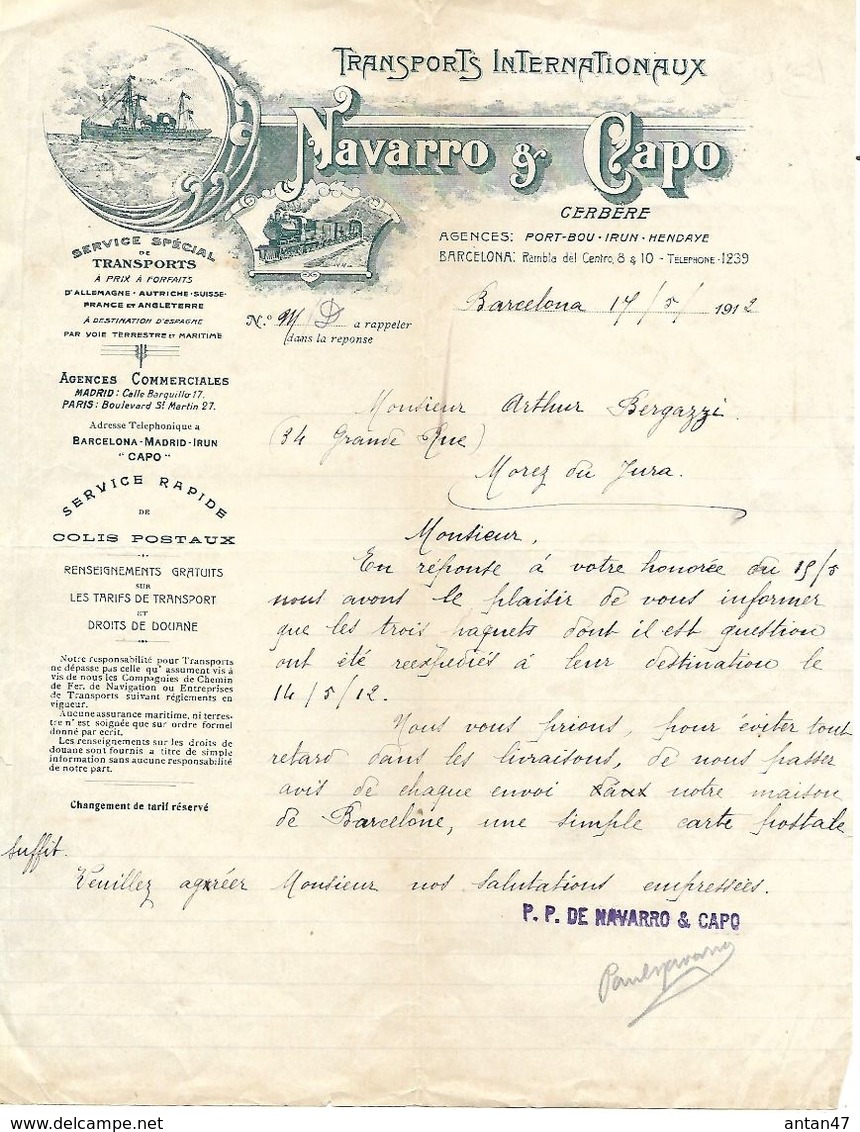 TRANSPORTS INTERNATIONAUX
Navarro & Capo
CERBERE
AGENCES: PORT-BOU · IRUN · HENDAYE
BARCELONA: Rambla del Centro, 8 & 10 - TELEPHONE - 1239
SERVICE SPÉCIAL
DE
TRANSPORTS
À PRIX À FORFAITS
D'ALLEMAGNE - AUTRICHE - SUISSE-
FRANCE ET ANGLETERRE
À DESTINATION D'ESPAGNE
PAR VOIE TERRESTRE ET MARITIME
AGENCES COMMERCIALES
MADRID: Calle Barquillo 17.
PARIS: Boulevard St Martin 27.
Adresse Telephonique a
BARCELONA - MADRID - IRUN
"CAPO"
SERVICE RAPIDE
DE
COLIS POSTAUX
RENSEIGNEMENTS GRATUITS
SUR
LES TARIFS DE TRANSPORT
ET
DROITS DE DOUANE
Notre responsabilité pour Transports
ne dépasse pas celle qu' assument vis à
vis de nous les Compagnies de Chemin
de Fer, de Navigation ou Entreprises
de Transports suivant réglements en
vigueur.
Aucune assurance maritime, ni terres-
tre n' est soignée que sur ordre formel
donné par ecrit.
Les renseignements sur les droits de
douane sont fournis a titre de simple
information sans aucune responsabilité
de notre part.
Changement de tarif réservé
Barcelona 17/5/ 1912
N.º D a rappeler
dans la reponse
Monsieur Arthur Bergazzi.
(34 Grande Rue)
Morez du Jura.
Monsieur,
En réponse à votre honorée du 15/5
nous avons le plaisir de vous informer
que les trois paquets dont il est question
ont été reexpediés à leur destination le
14/5/12.
Nous vous prions, pour éviter tout
retard dans les livraisons, de nous passer
avis de chaque envoi notre maison
de Barcelone, une simple carte postale
suffit.
Veuillez agréer Monsieur nos salutations empressées.
P. P. DE NAVARRO & CAPO
antan47